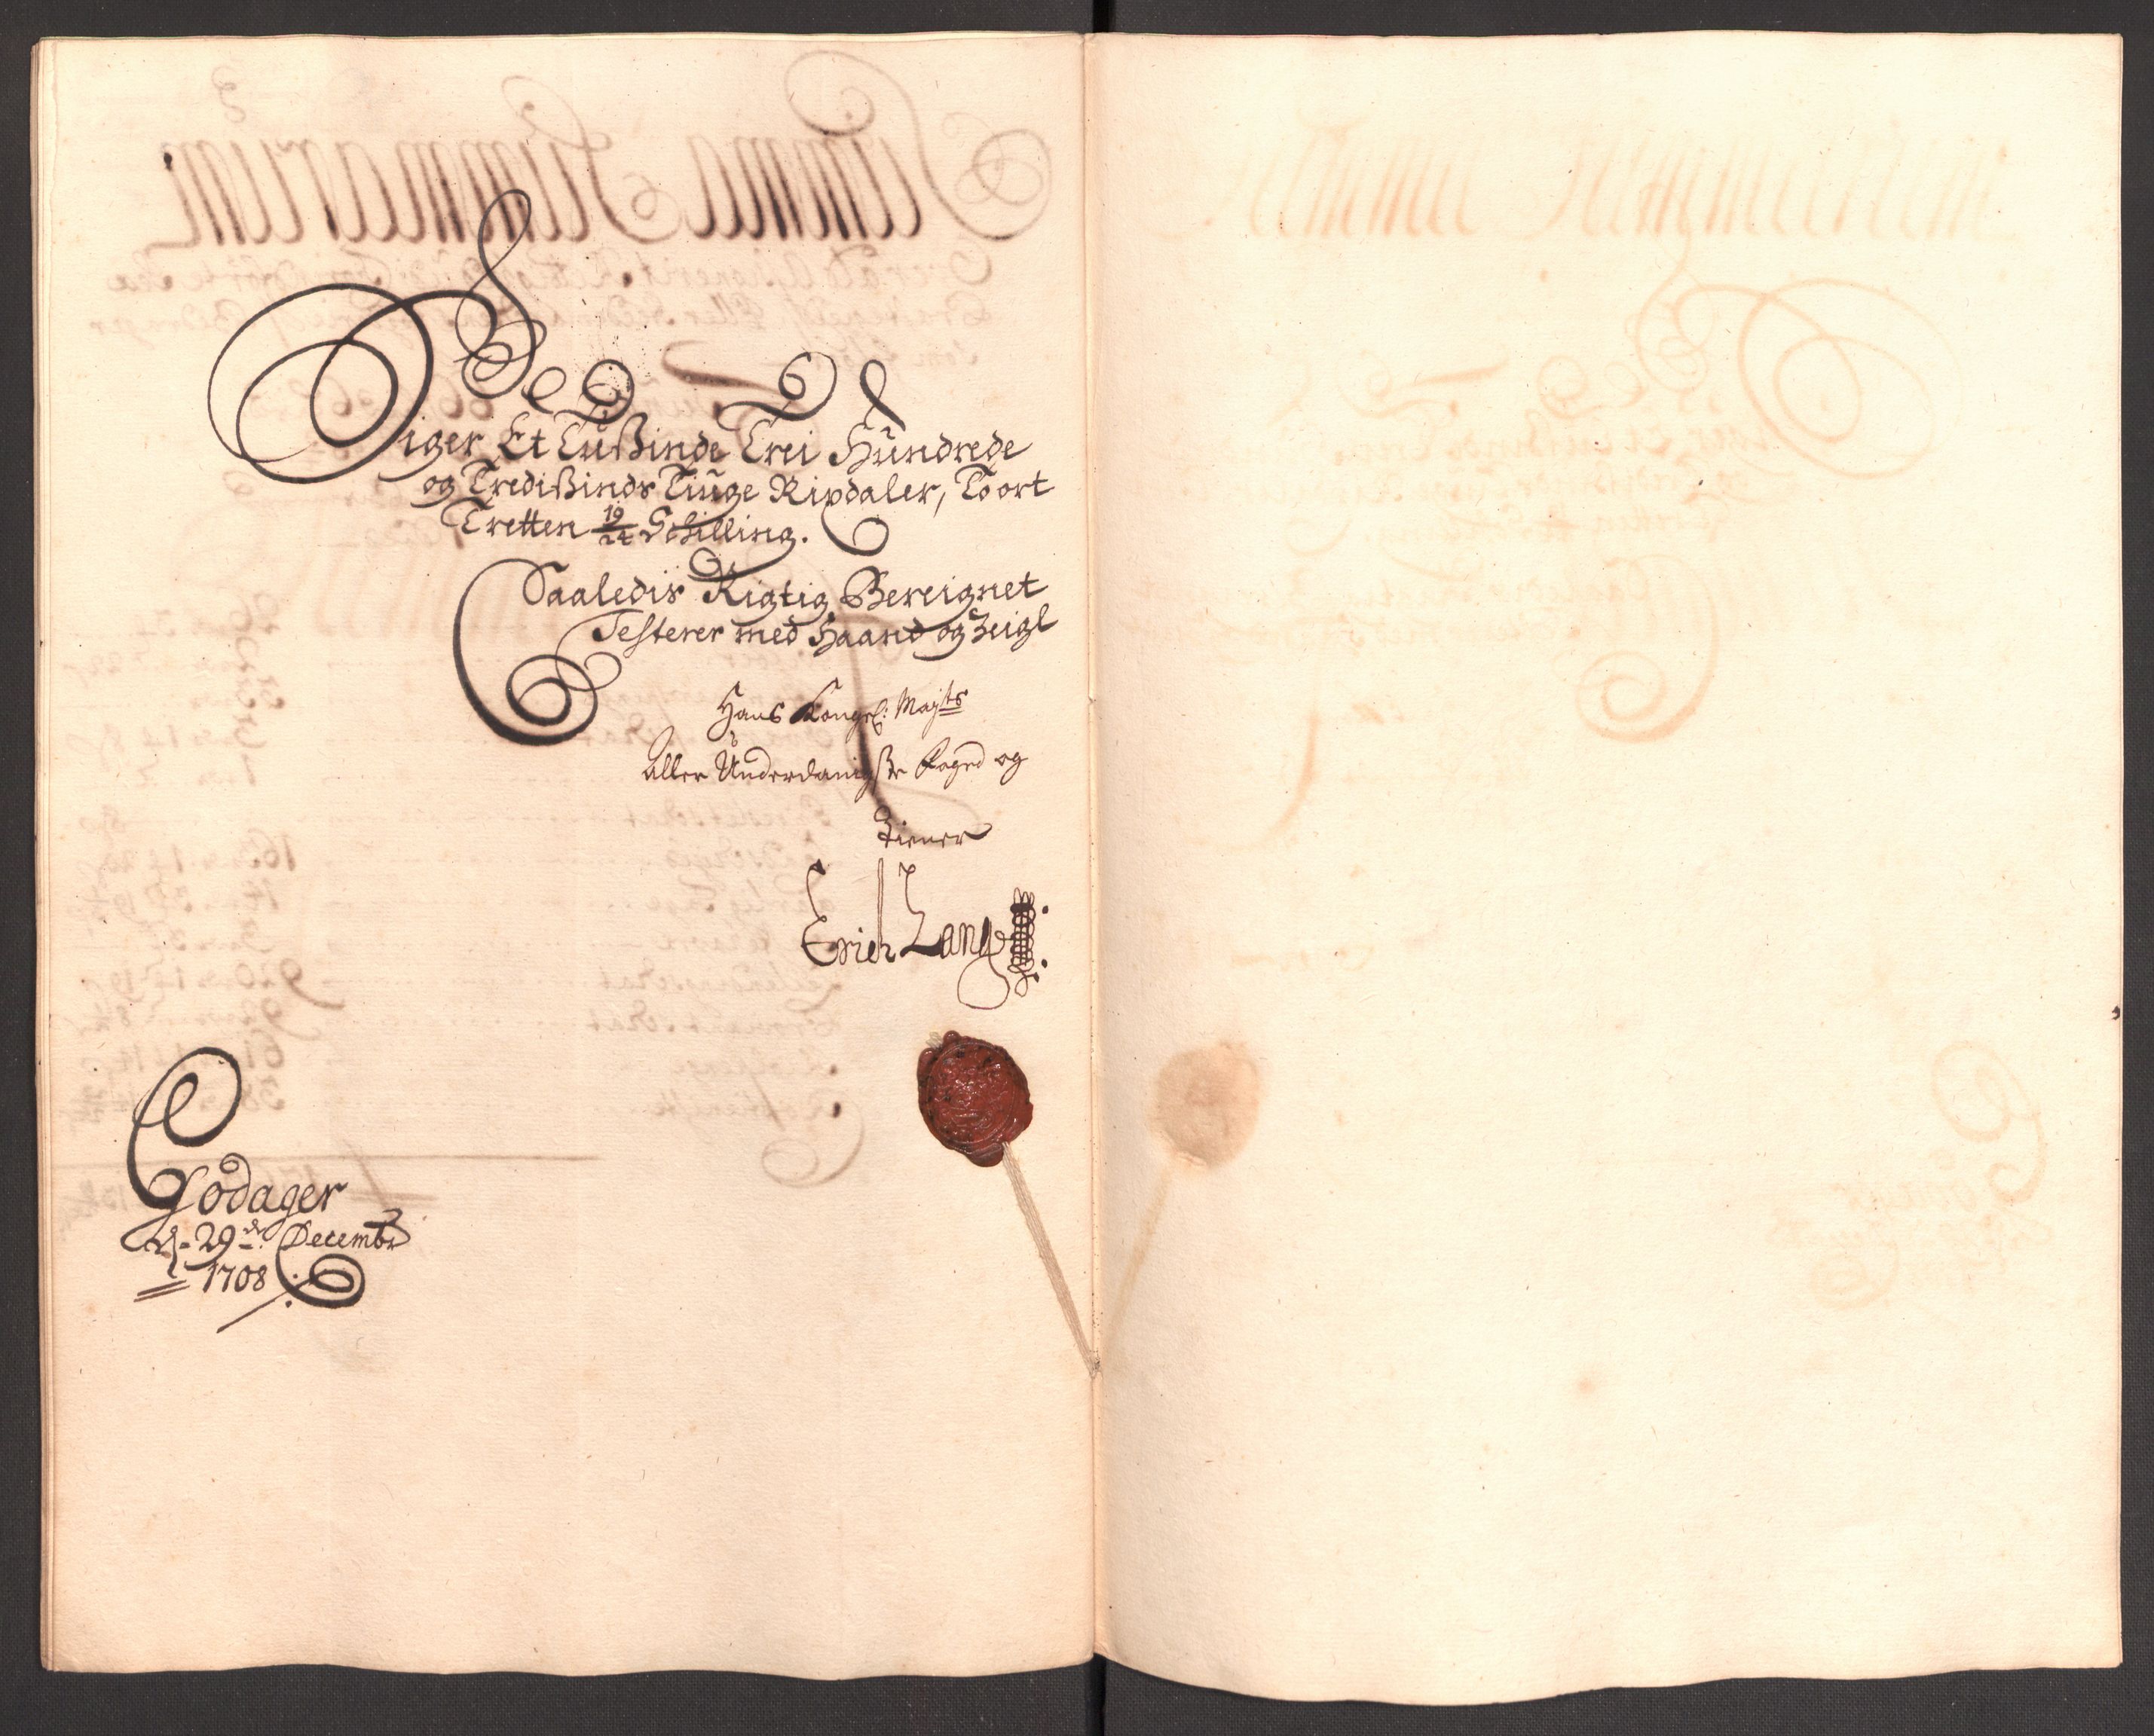 Siger Et Tußinde Trei Hundrede
og Tredißinds Tiuge Rixdaler, To ort
Tretten 19/24 Schilling.
Saaledis Rigtig Bereignet
Testerer med Haand og Zeigl
Hans Kongel: Mayts
Aller Underdanigste Foged og
Tiener
Erich Lang
Godager
d. 29de Decembr
1708